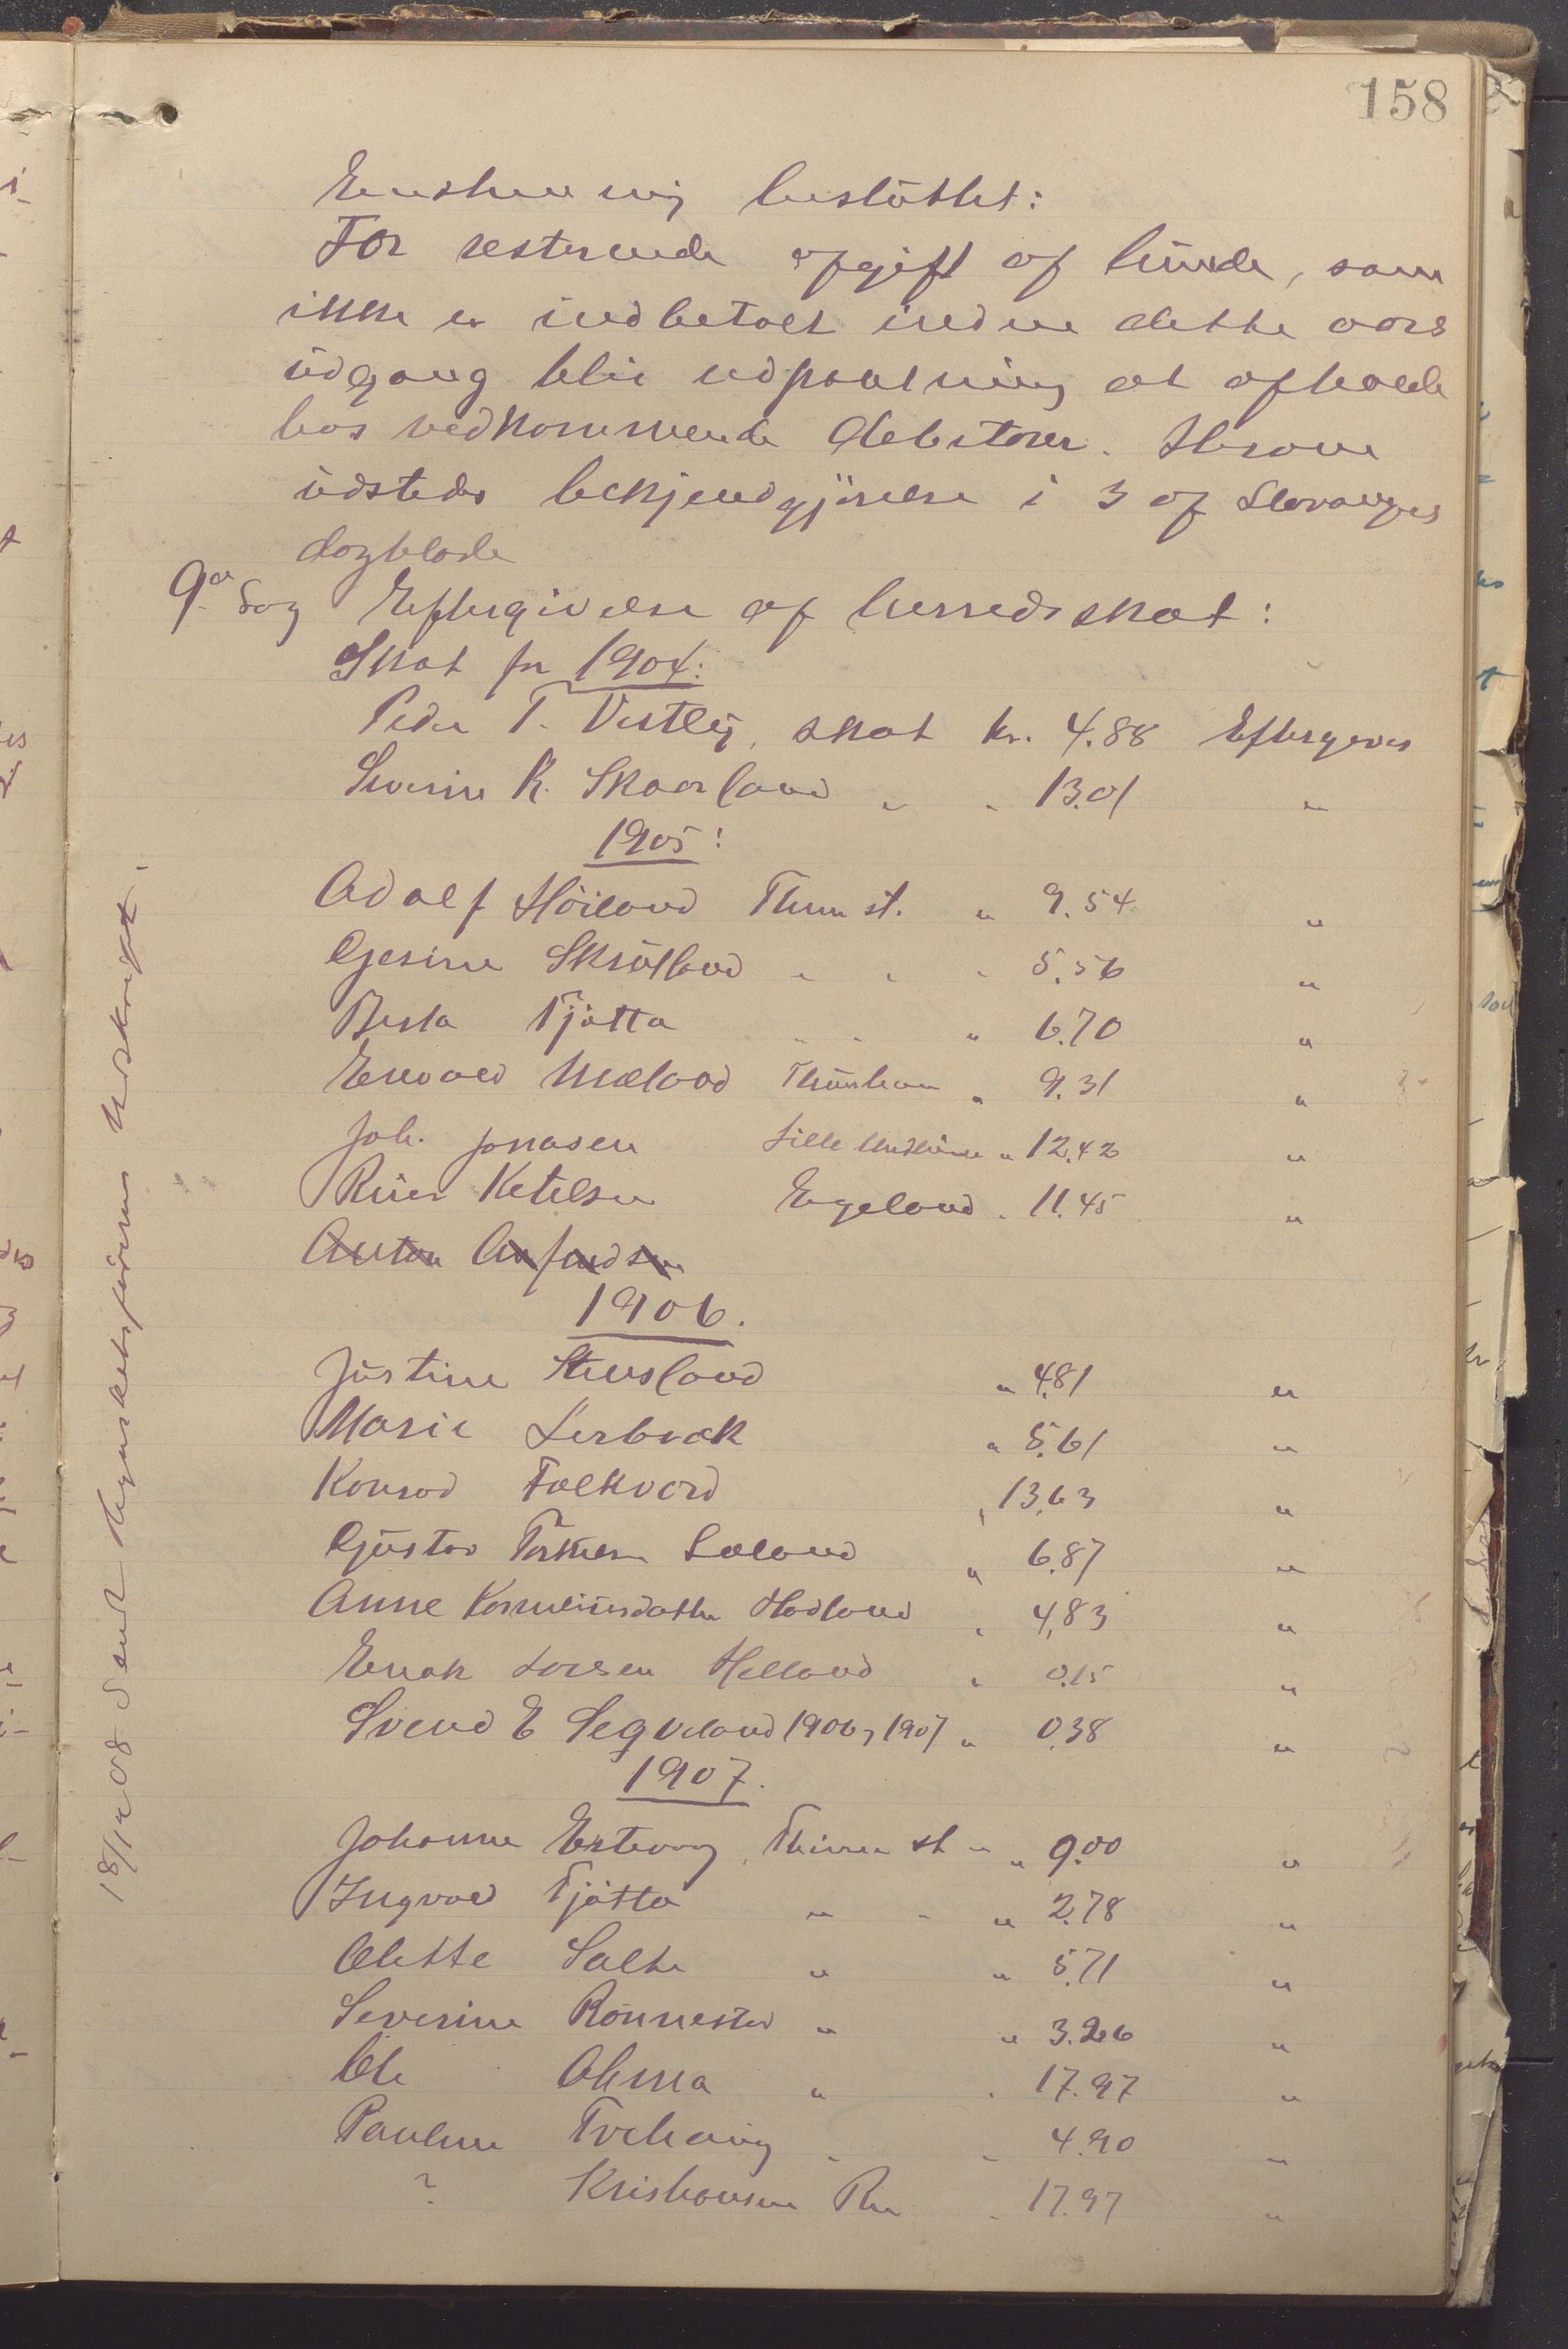 158
Enstemmig besluttet:
For resterende afgift af hunde, som
ikke er indbetalt inden dette aars
udgang blir udpantning at afholde
hos vedkommende debitorer. Herom
udstedes bekjendgjørelse i 3 af Stavangers
dagblade
9de Sag Eftergivelse af herredsskat:
Skat for 1904:
Peder T. Vestly, skat kr. 4.88 Eftergives
Severine K. Skaarland " " 13.01 "
1905:
Adolf Höiland Thime st. " 9.54 "
Gjesine Skrutland " " " 5.56 "
Berta Tjötta " " " 6.70 "
Enevald Mæland Thimeham " 9.31 "
Joh. Jonasen Lille Undheim " 12.42 "
Reier Ketelsen Egeland " 11.45 "
Anton Arfindsen
1906.
Justine Stensland " 4.81 "
Marie Lerbrek " 5.61 "
Konrad Folkvord " 13.63 "
Gustav Torkelsen Læland " 6.87 "
Anne Korneliusdatter Hodland " 4,83 "
Enok Larsen Helland " 0.15 "
Svend E Segveland 1906, 1907 " 0.38 "
1907.
Johanne Ertevaag, Thime st " " 9.00 "
Ingvald Tjötta " " " 2.78 "
Olette Salte " " 5.71 "
Severine Rönnestad " " 3.26 "
Ole Olima " " 17.97 "
Pauline Tvehaug " " 4.90 "
? Kristiansen Re " 17.97 "
18/12 08 Sendt Regnskabsföreren Udskrift.